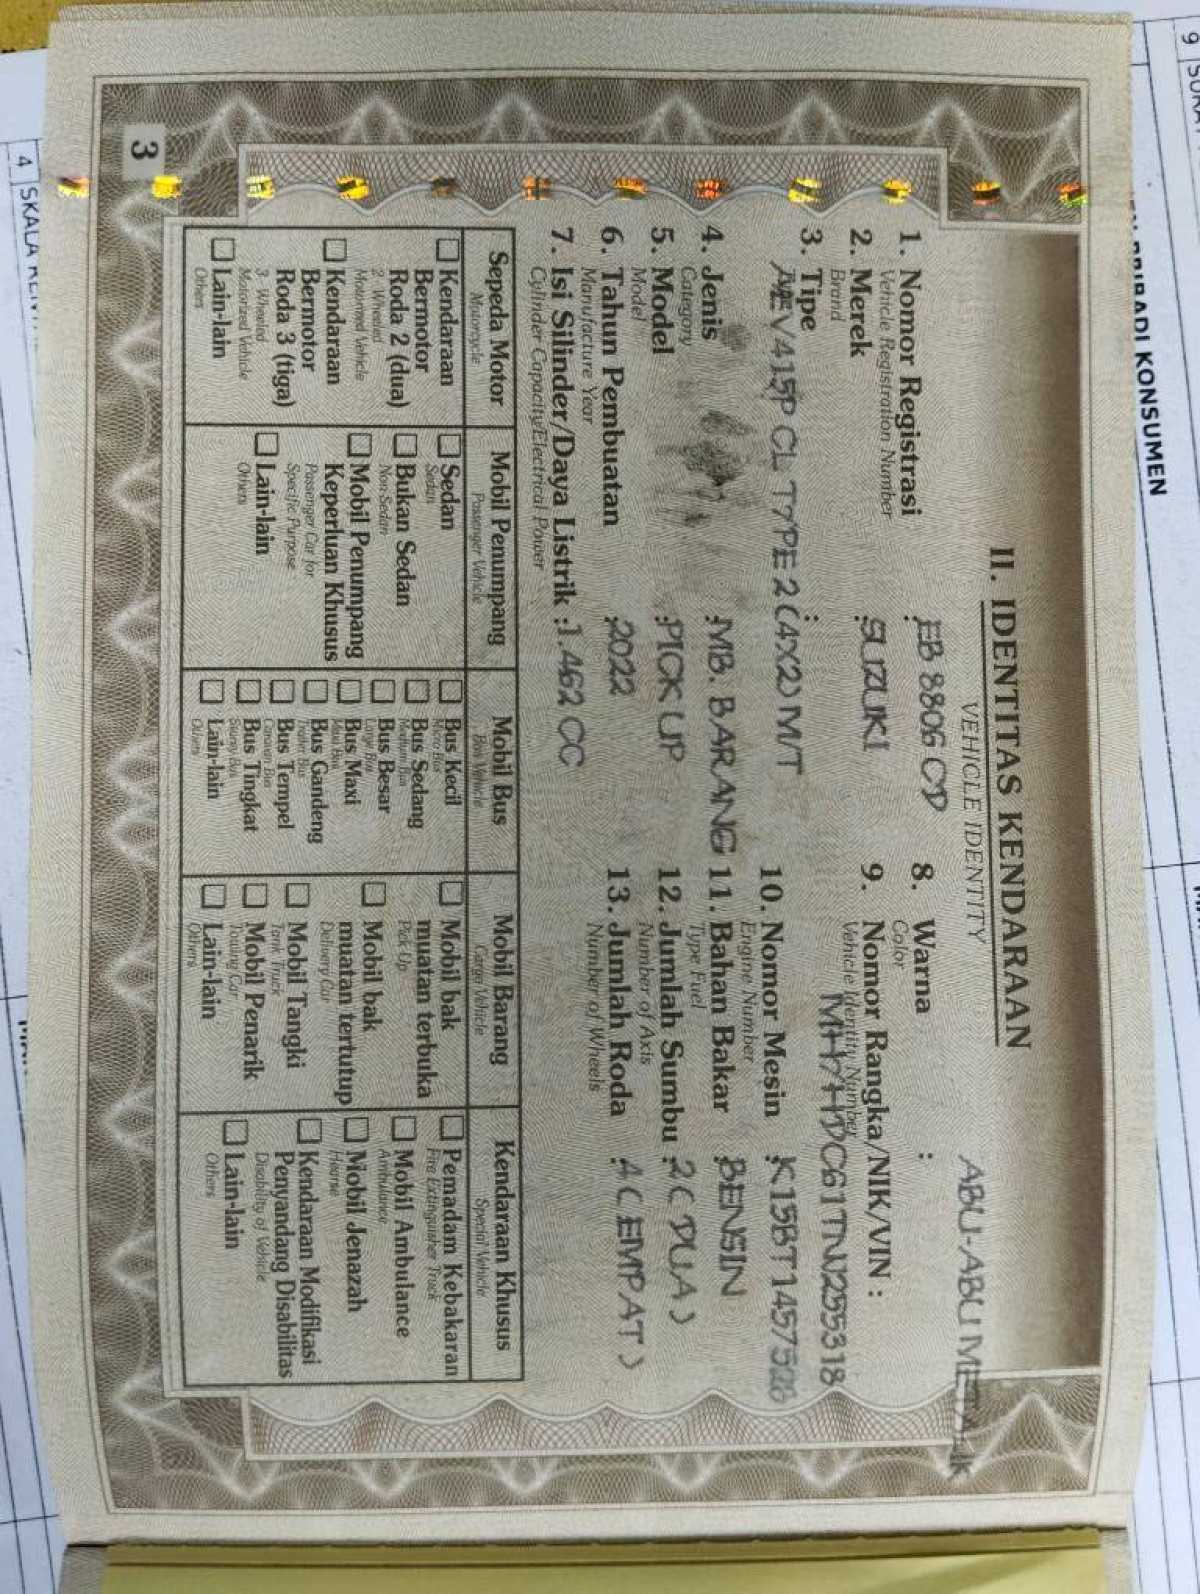 II. IDENTITAS KENDARAAN
VEHICLE IDENTITY
1. Nomor Registrasi : EB 8806 CD
Vehicle Registration Number
2. Merek : SUZUKI
Brand
3. Tipe :
AEV415P CL TYPE 2 (4X2) M/T
4. Jenis : MB. BARANG
Category
5. Model : PICK UP
Model
6. Tahun Pembuatan : 2022
Manufacture Year
7. Isi Silinder/Daya Listrik : 1.462 CC
Cylinder Capacity/Electrical Power
8. Warna : ABU-ABU METALIK
Color
9. Nomor Rangka/NIK/VIN :
Vehicle Identity Number
MHYHDC61TNJ255318
10. Nomor Mesin : K15BT1457528
Engine Number
11. Bahan Bakar : BENSIN
Type Fuel
12. Jumlah Sumbu : 2 ( DUA )
Number of Axis
13. Jumlah Roda : 4 ( EMPAT )
Number of Wheels
Sepeda Motor
Motorcycle
Kendaraan
Bermotor
Roda 2 (dua)
2 Wheeled
Motorized Vehicle
Kendaraan
Bermotor
Roda 3 (tiga)
3 Wheeled
Motorized Vehicle
Lain-lain
Others
Mobil Penumpang
Passenger Vehicle
Sedan
Sedan
Bukan Sedan
Non Sedan
Mobil Penumpang
Keperluan Khusus
Passenger Car for
Specific Purpose
Lain-lain
Others
Mobil Bus
Bus Vehicle
Bus Kecil
Micro Bus
Bus Sedang
Medium Bus
Bus Besar
Large Bus
Bus Maxi
Maxi Bus
Bus Gandeng
Bus Tempel
Bus Tingkat
Lain-lain
Others
Mobil Barang
Cargo Vehicle
Mobil bak
muatan terbuka
Pick Up
Mobil bak
muatan tertutup
Delivery Car
Mobil Tangki
Tank Truck
Mobil Penarik
Towing Car
Lain-lain
Others
Kendaraan Khusus
Special Vehicle
Pemadam Kebakaran
Fire Extinguisher Truck
Mobil Ambulance
Ambulance
Mobil Jenazah
Hearse
Kendaraan Modifikasi
Penyandang Disabilitas
Disability of Vehicle
Lain-lain
Others
3
PRIBADI KONSUMEN
9
4 SKALA